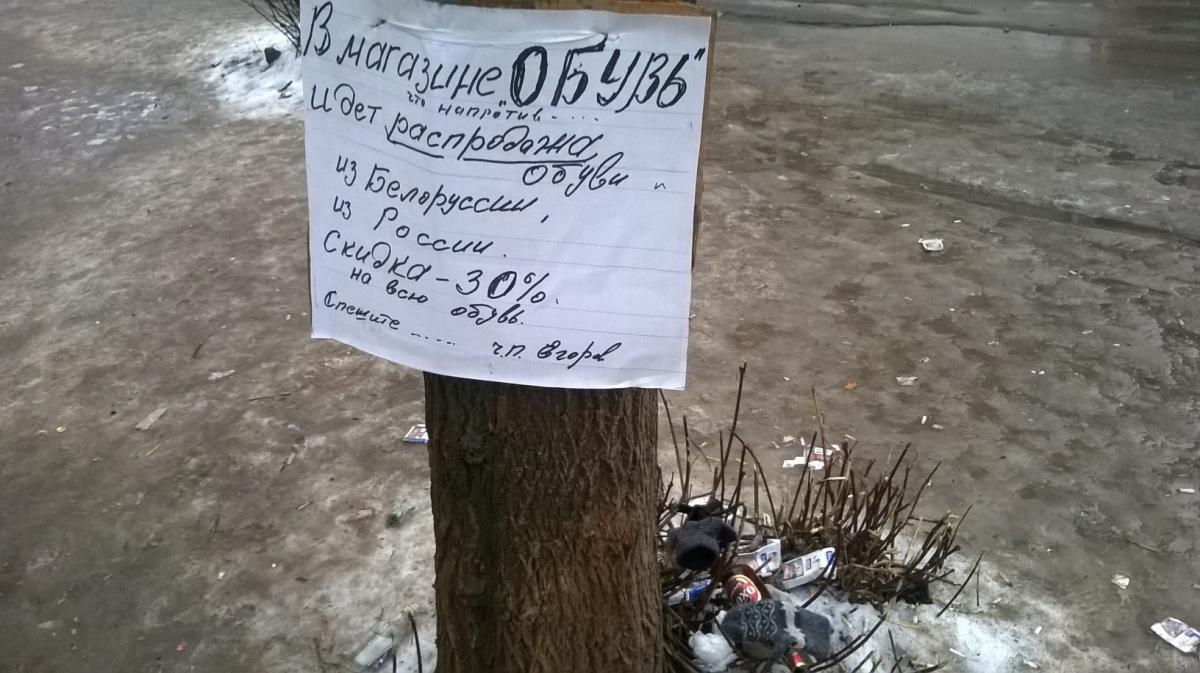 В магазине "ОБУВЬ"
что напротив-...
идет распродажа
обуви
из Белоруссии,
из России.
Скидка - 30%.
на всю обувь.
Спешите .....
ч.п. Егоров